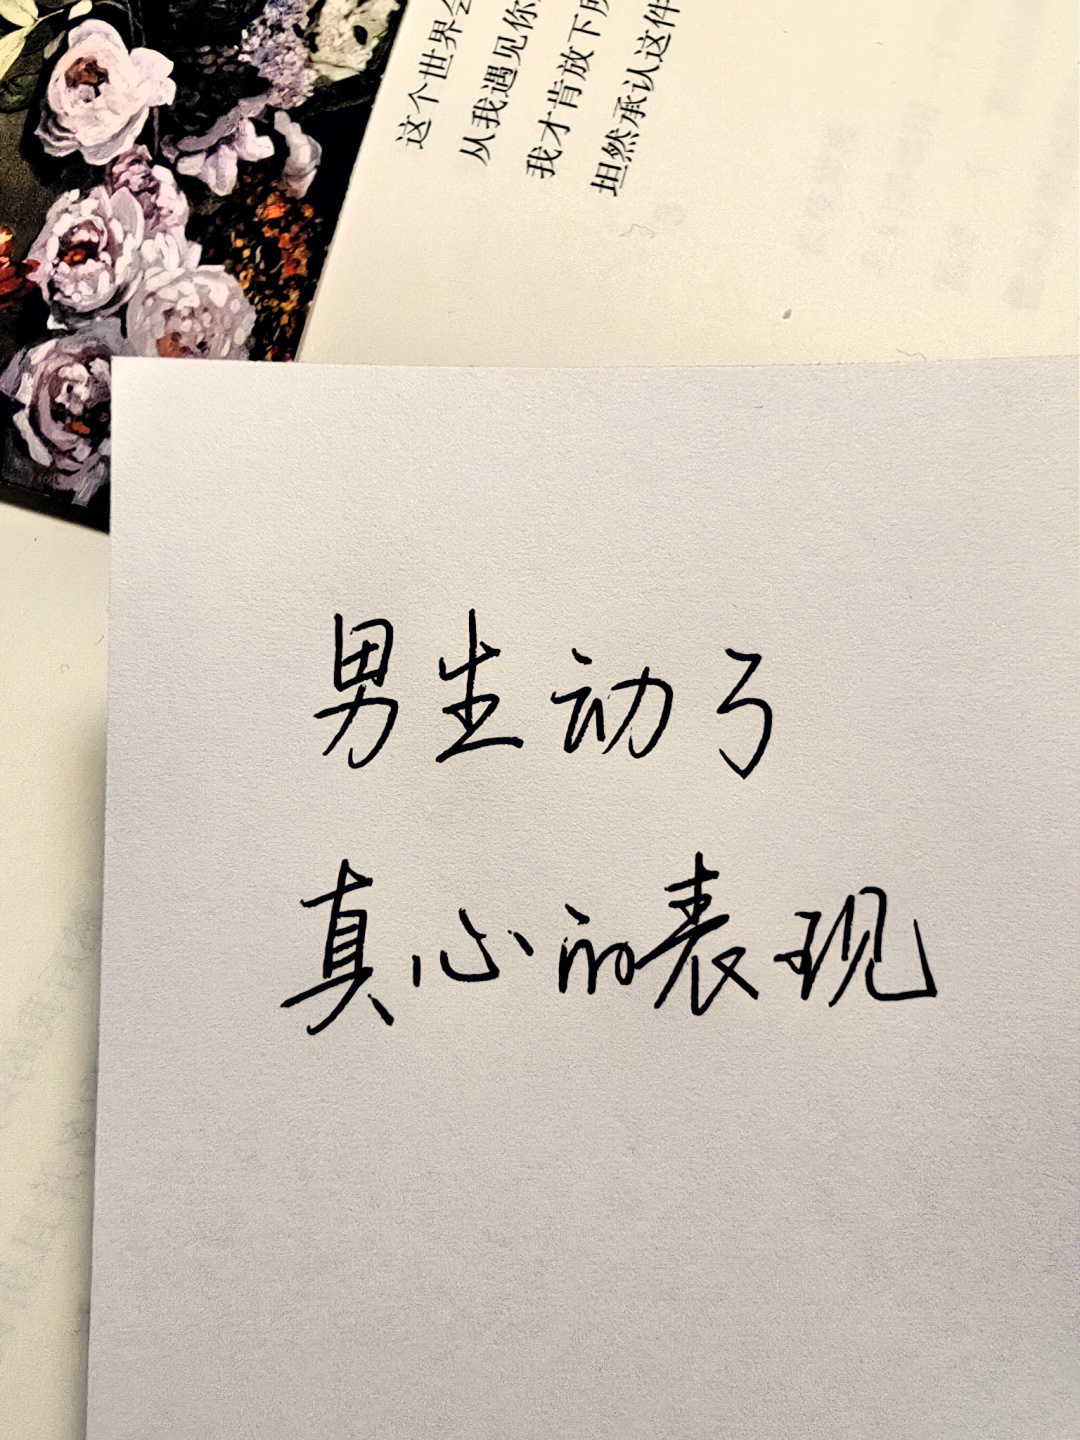 这个世界会
从我遇见你
我才肯放下所
坦然承认这件
男生动了
真心的表现